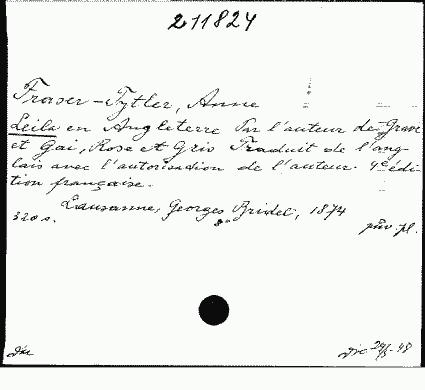 211824
Fraser-Tytler, Anne
Leila en Angleterre Par l'auteur de Grave
et Gai, Rose et Gris Traduit de l'ang
lais avec l'autorisation de l'auteur. 4e édi
tion française.
Lausanne, Georges Bridel, 1874
320 s. 8° pův. pl.